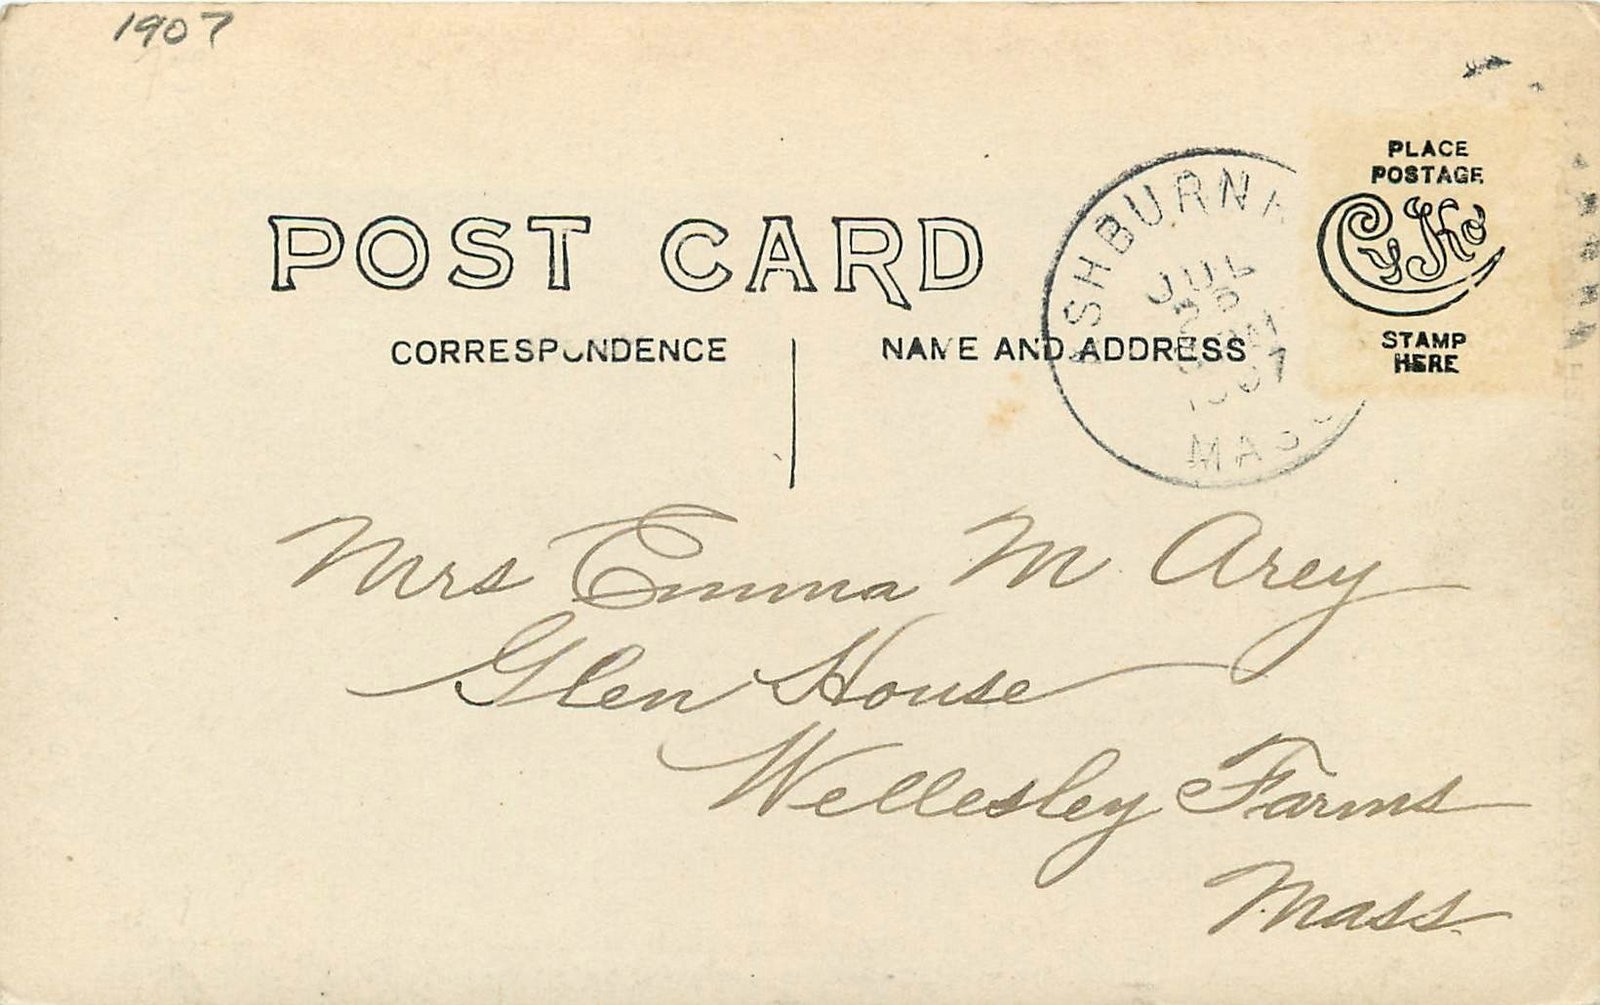 1907
POST CARD
CORRESPONDENCE
NAME AND ADDRESS
ASHBURNH
JUL
1907
MASS
PLACE
POSTAGE
CyKo
STAMP
HERE
Mrs Emma M Arey
Glen House
Wellesley Farms
Mass.